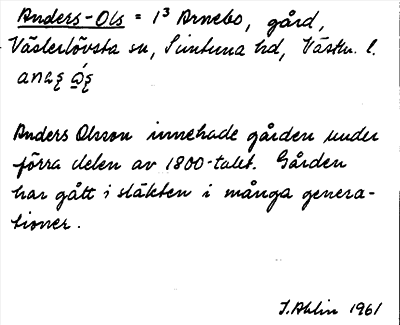 Anders-Ols = 1³ Arnebo, gård,
Västerlövsta sn, Simtuna hd, Västm. l.
Anders Olsson innehade gården under
förra delen av 1800-talet. Gården
har gått i släkten i många genera-
tioner.
I. Ahlin 1961